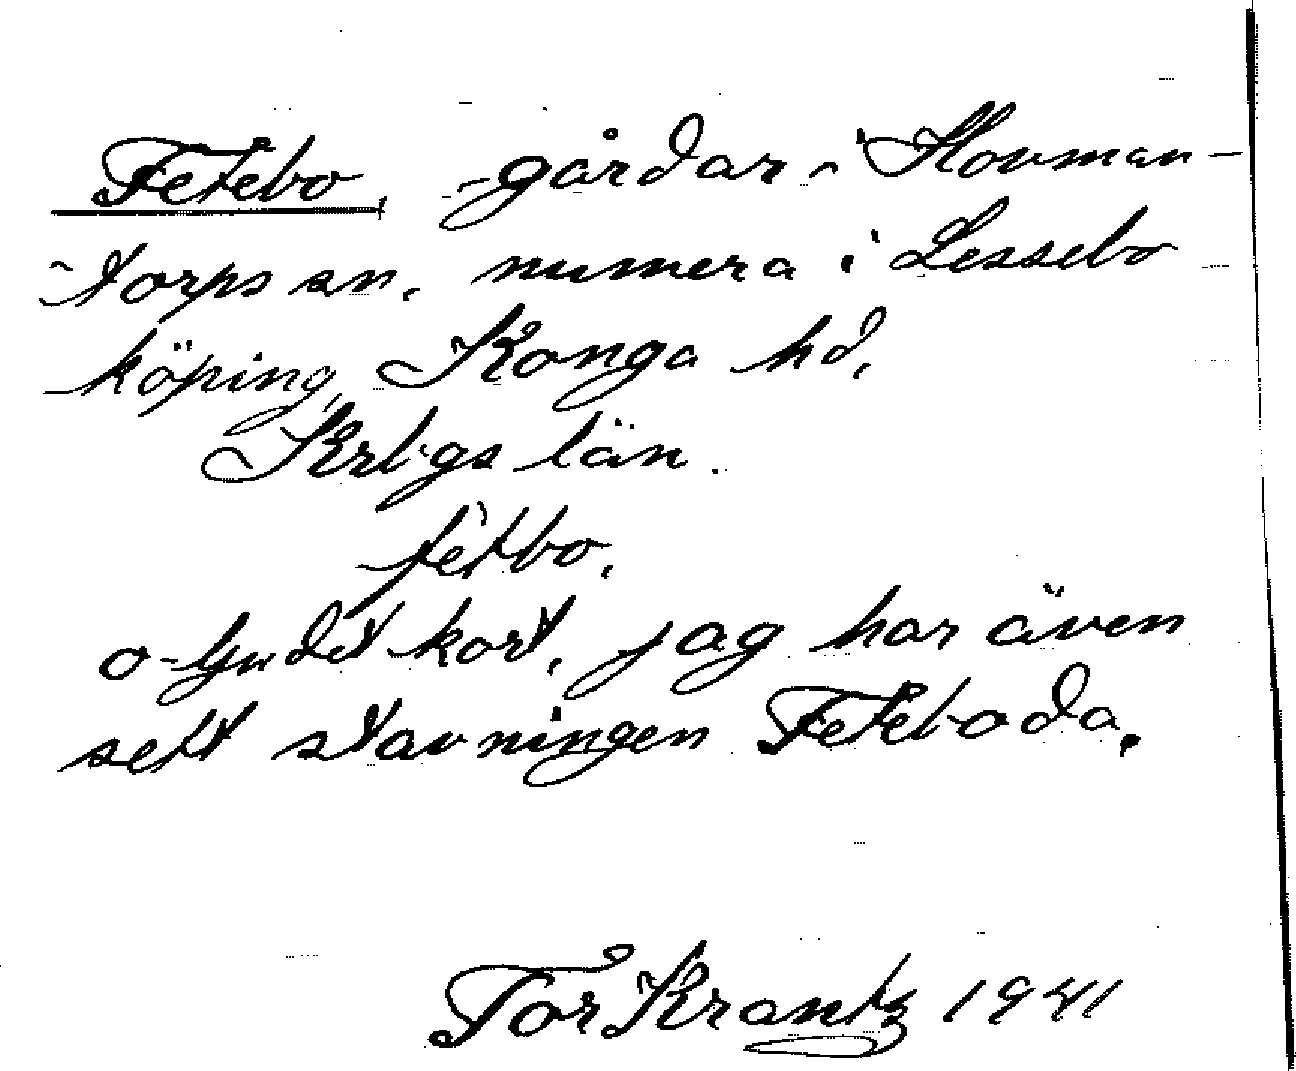 Fetebo, -gårdar i Hovman-
torps sn. numera i Lessebo
köping, Konga hd.
Krbgs län.
fetbo.
o-ljudet kort, jag har även
sett stavningen Feteboda.
Tor Krantz 1941